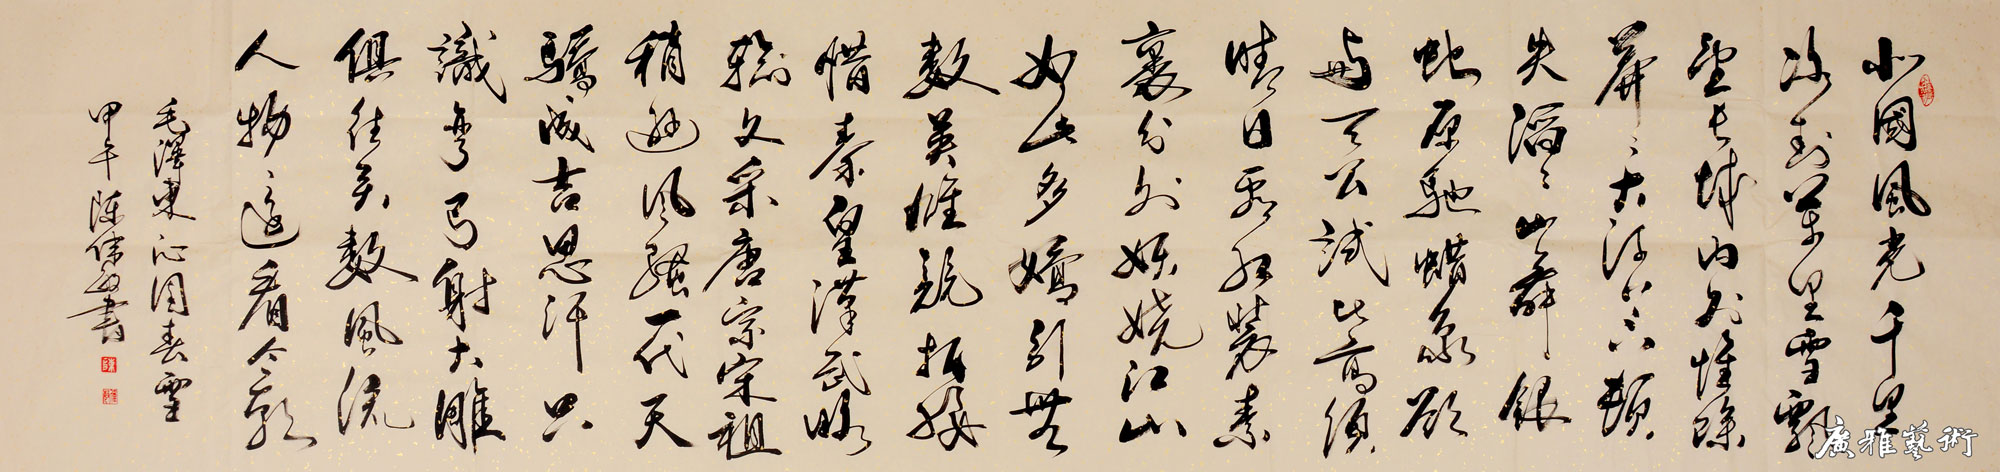 北國風光千里
冰封萬里雪飄
望長城內外惟餘
莽〻大河上下頓
失滔〻山舞銀
蛇原馳蜡象欲
與天公試比高須
晴日看紅裝素
裹分外妖嬈江山
如此多嬌引無
數英雄競折腰
惜秦皇漢武略
輸文采唐宗宋祖
稍遜風騷一代天
驕成吉思汗只
識彎弓射大雕
俱往矣數風流
人物還看今朝
毛澤東沁園春雪
甲午陳書
廣雅藝術